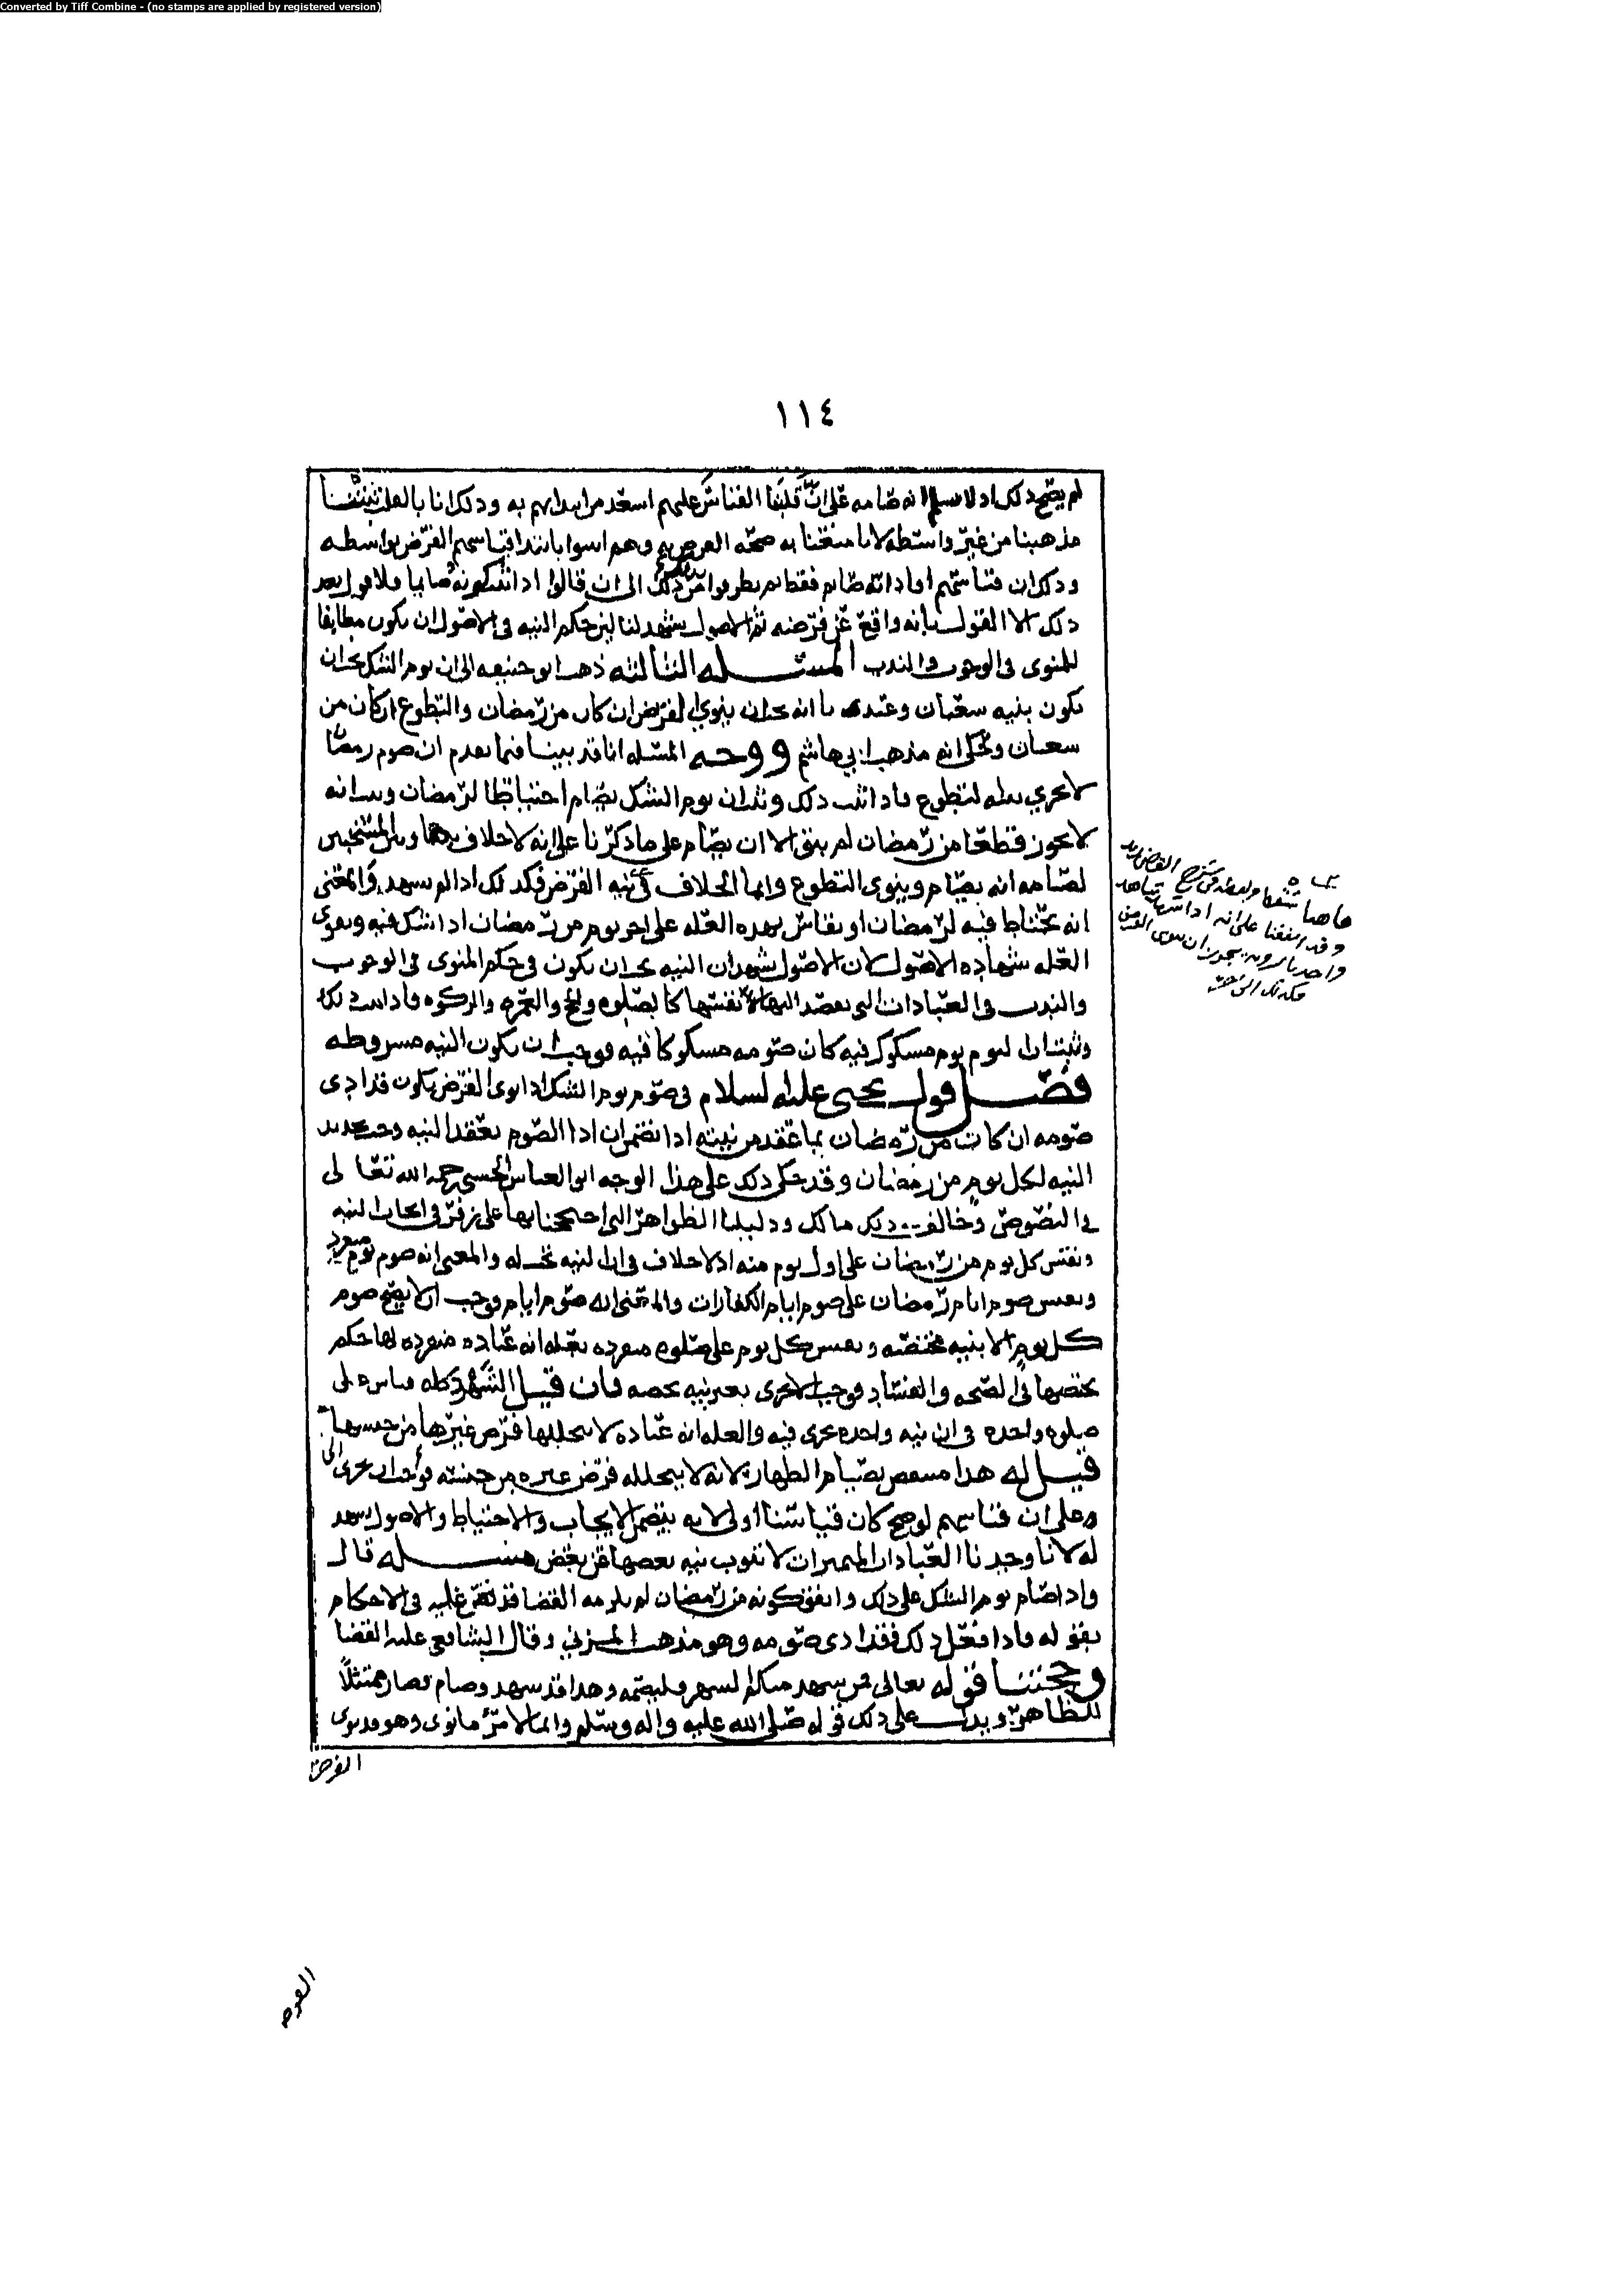 Converted by Tiff Combine - (no stamps are applied by registered version)
١١٤
لم يصح ذلك اذ لا نسلم انه صامه على ان قلبنا القياس عليهم اسعد من ابتدايهم به وذلك انا بالقلب
مذهبنا من غير واسطه لانا به صحه الفرض وهم اقياسهم الفرض بواسطه
وذلك ان قياسهم افاد انه صايم فقط ثم من ذلك الى ان قالوا اذا ثبت كونه صايما فلا قول بعد
ذلك الا القول بانه واقع عن فرضه ثم الاصول تشهد لنا حكم النيه في الاصول ان يكون مطابقا
للمنوى في الوجوب والندب المسئله الثالثه ذهب ابو حنيفه الى ان يوم الشك يجب ان
يكون بنيه شعبان وعندنا انه يجب ان ينوي الفرض ان كان من رمضان والتطوع ان كان من
شعبان وحكي انه مذهب ابي هاشم ووجه المسئله انا قد بينا فيما تقدم ان صوم رمضان
لا يجزي بنيه التطوع فاذا ثبت ذلك وثبت ان يوم الشك يصام احتياطا لرمضان وثبت انه
لا يجوز قطعا من رمضان لم يبق الا ان يصام على ما ذكرنا على انه لا خلاف بيننا وبين المستحبين
لصيامه انه يصام وينوى التطوع وانما الخلاف في نيه الفرض فكذلك اذا لم يشهد والمعنى
انه يحتاط فيه لرمضان او يقاس بهذه العله على اخر يوم من رمضان اذا شك فيه ويقوي
العله شهاده الاصول لان الاصول تشهد ان النيه يجب ان تكون في حكم المنوى في الوجوب
والندب في العبادات التي يقصد اليها لانفسها كالصلوه والحج والعمره والزكوه فاذا ثبت ذلك
وثبت ان اليوم يوم مشكوك فيه كان صومه مشكوكا فيه فوجب ان يكون النيه مشروطه
فصل قول يحيى عليه السلام في صوم يوم الشك اذا نوى الفرض يكون قد ادى
صومه ان كان من رمضان بما عقد من نيته اذا يقتضي ان اداء الصوم بعقد النيه وجب تجديد
النيه لكل يوم من رمضان وقد حكى ذلك على هذا الوجه ابو العباس الحسني رحمه الله تعالى
في النصوص وخالف في ذلك مالك ودليلنا الظواهر التي احتججنا بها على زفر في ايجاب النيه
ونقيس كل يوم من رمضان على اول يوم منه اذ لا خلاف في ان النيه تجب له والمعنى انه صوم يوم
ونقيس صوم ايام رمضان على صوم ايام الكفارات والمعنى انه صوم ايام فوجب ان لا يصح صوم
كل يوم الا بنيه تختصه ونقيس كل يوم على صلوه منفرده بعله انه عباده منفرده لها حكم
يختصها في الصحه والفساد فوجب ان لا يجزى بغير نيه تخصه فان قيل الشهر كله قياس على
صلوه واحده في ان نيه واحده تجزى فيه والعله انه عباده لا يتخللها فرض غيرها من جنسها
قيل له هذا منتقض بصيام الظهار لانه لا يتخلله فرض غيره من جنسه
وعلى ان قياسهم لو صح كان قياسنا اولى لانه يتضمن الايجاب والاحتياط والاصول تشهد
له لانا وجدنا العبادات المتميزات لا تنوب نيه بعضها عن بعض مسئله قال
واذا صام يوم الشك على ذلك واتفق كونه من رمضان لم يلزمه القضا قد نص عليه في الاحكام
بقوله فاذا فعل ذلك فقد ادى صومه وهو مذهب المزني وقال الشافعي عليه القضا
وحجتنا قوله تعالى فمن شهد منكم الشهر فليصمه وهذا قد شهد وصام فصار ممتثلا
للظاهر ويدل على ذلك قوله صلى الله عليه واله وسلم وانما لامرئ ما نوى وهو قد نوى
الفرض
وقد اتفقنا على انه اذا
الفرض